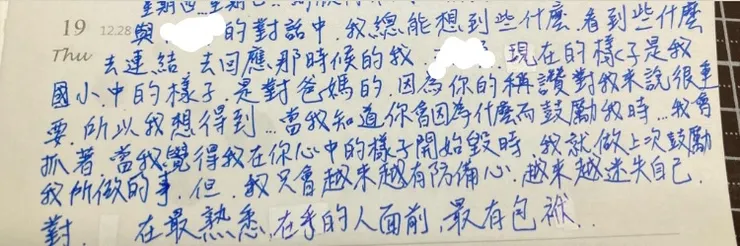 19 12.28
Thu
與 的對話中.我總能想到些什麼.看到些什麼
去連結.去回應.那時候的我. .現在的樣子是我
國小.中的樣子.是對爸媽的.因為你的稱讚對我來說很重
要.所以我想得到...當我知道你會因為什麼而鼓勵我時...我會
抓著.當我覺得我在你心中的樣子開始毀時.我就做上次鼓勵
我所做的事.但.我只會越來越有防備心.越來越迷失自己.
對. 在最熟悉.在乎的人面前,最有包袱..